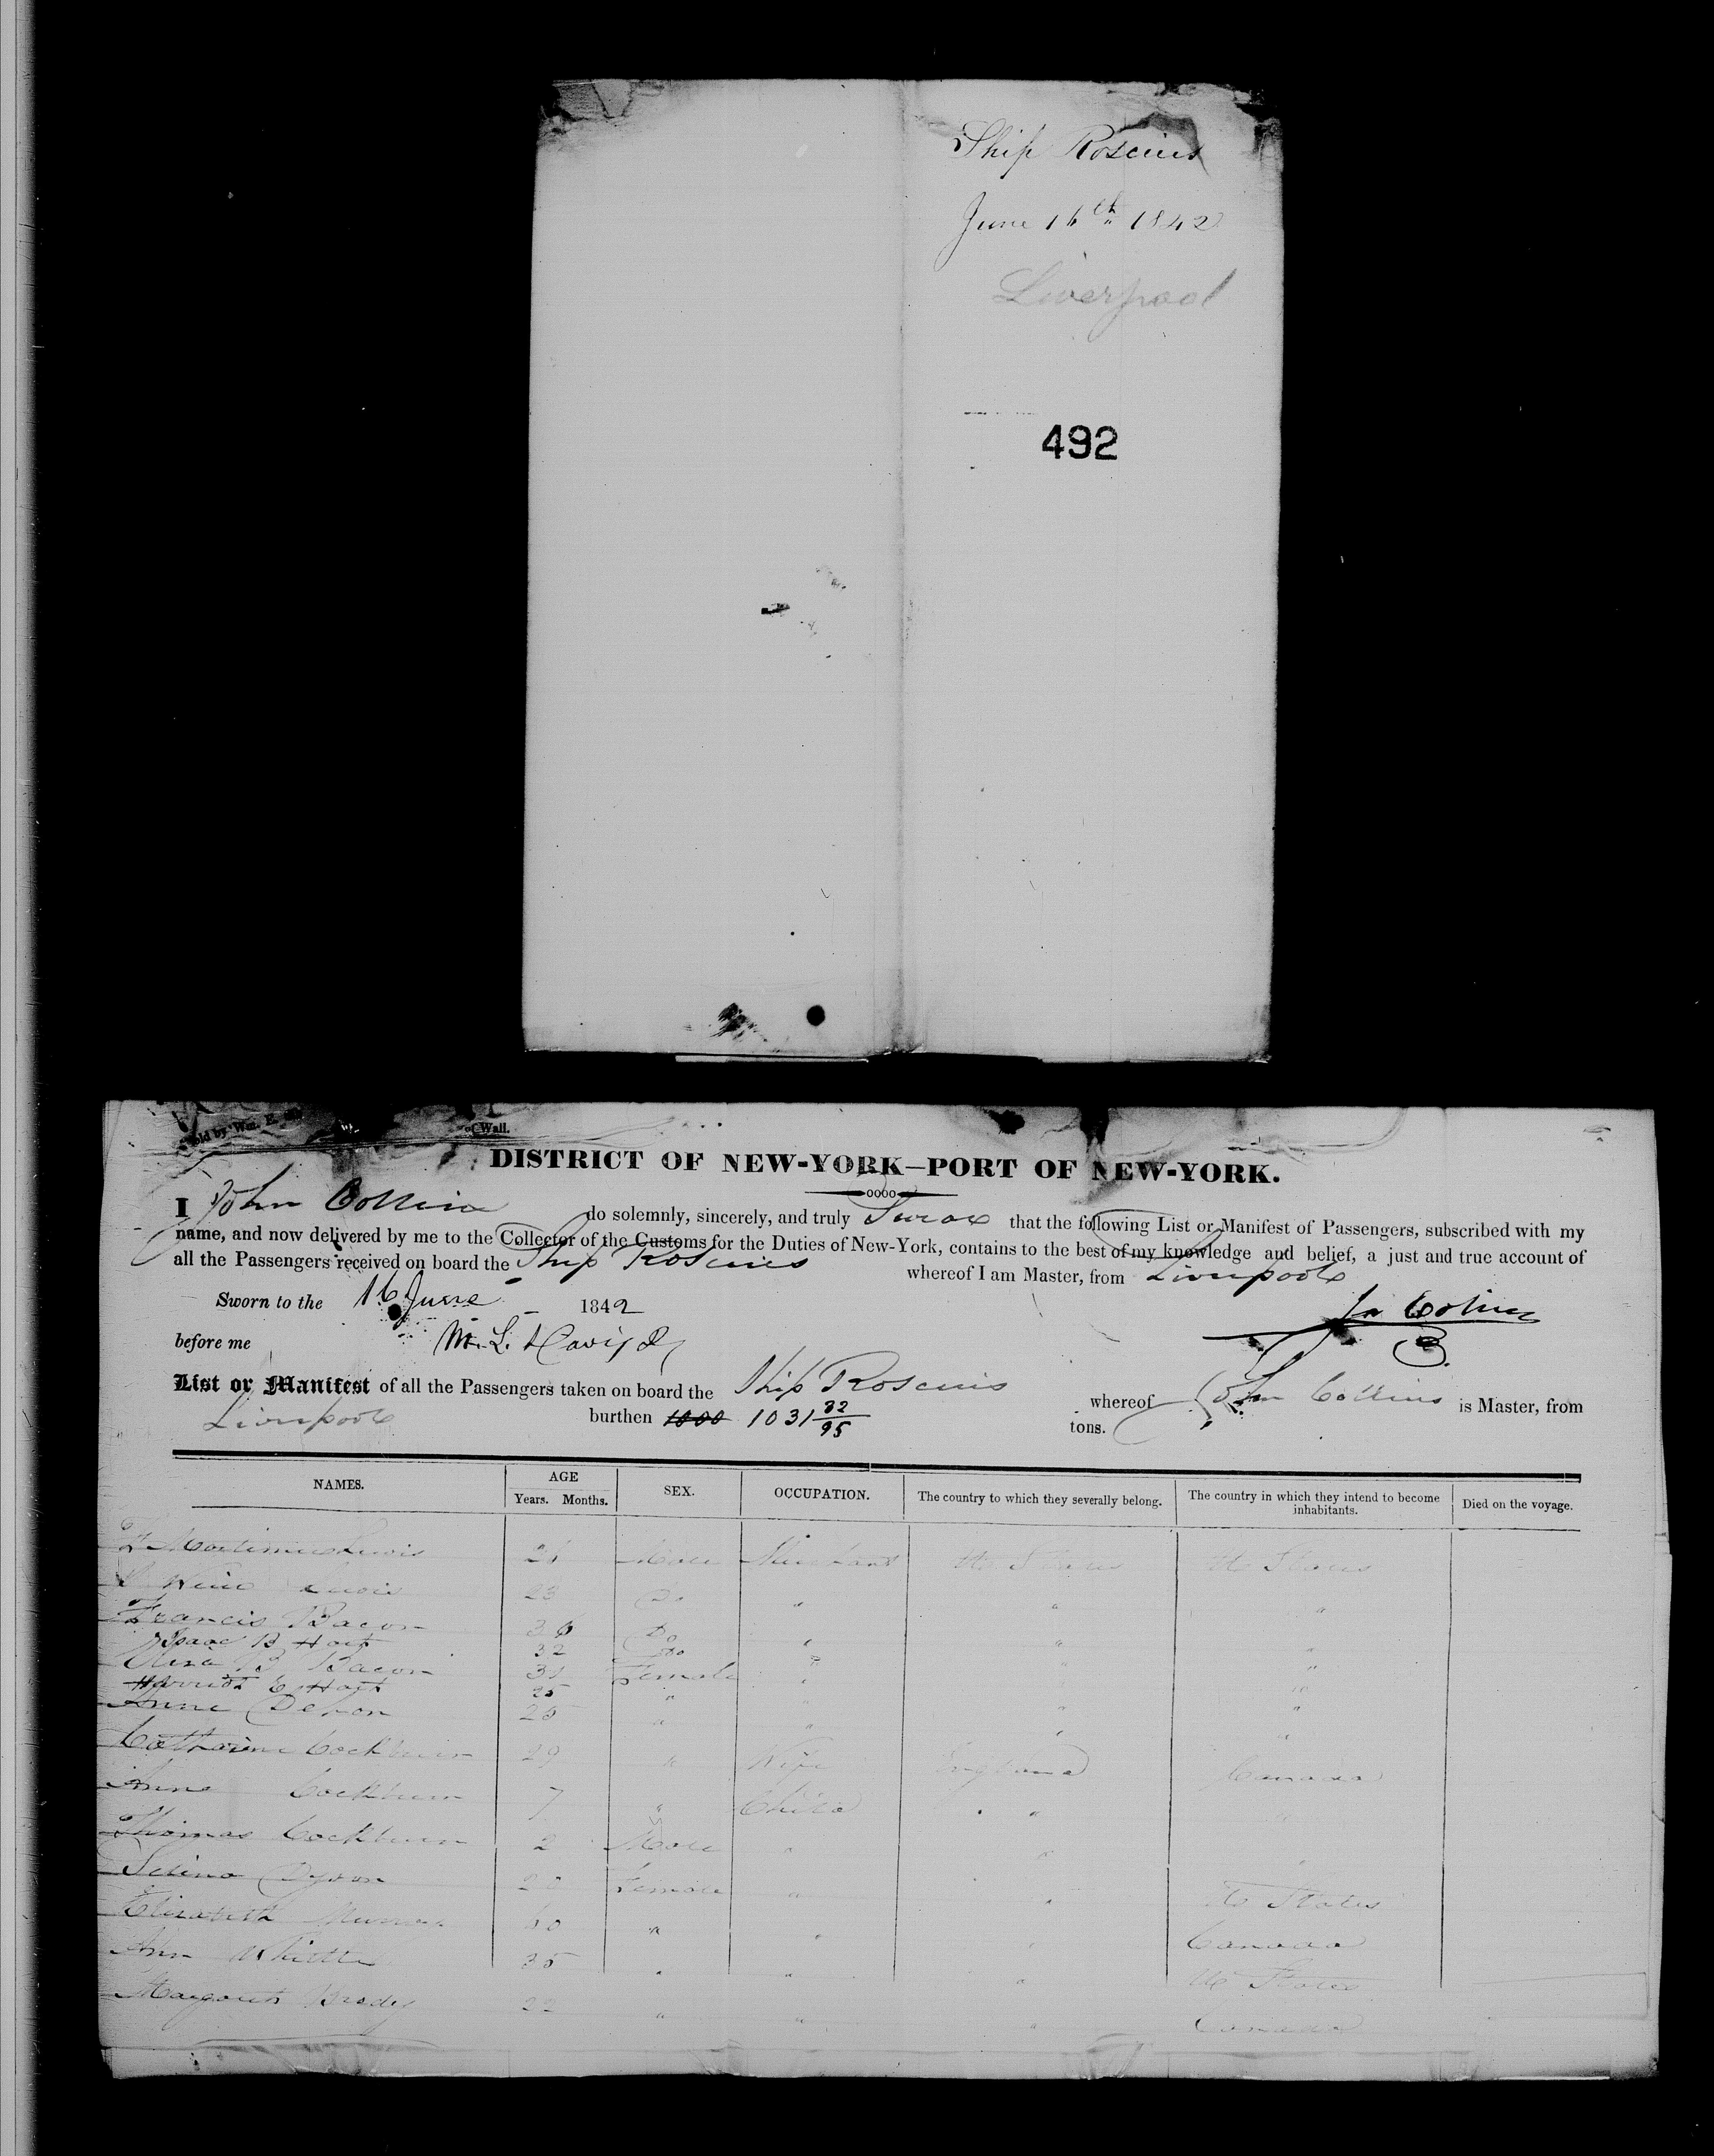 Ship Roscius
June 16th 1842
Liverpool
492
Sold by Wm. E.
Wall.
DISTRICT OF NEW-YORK—PORT OF NEW-YORK.
I John Collins do solemnly, sincerely, and truly Swear that the following List or Manifest of Passengers, subscribed with my
name, and now delivered by me to the Collector of the Customs for the Duties of New-York, contains to the best of my knowledge and belief, a just and true account of
all the Passengers received on board the Ship Roscius whereof I am Master, from Liverpool
Sworn to the 16 June 1842
Jn Collins
before me M. L. Davis
List or Manifest of all the Passengers taken on board the Ship Roscius whereof John Collins is Master, from
Liverpool burthen 1000 1031 32/95 tons.
NAMES. AGE Years. Months. SEX. OCCUPATION. The country to which they severally belong. The country in which they intend to become inhabitants. Died on the voyage.
Mortimer Lewis 26 Male Merchant U States U States
Lewis 23 Do " " "
Francis Bacon 30 Do " " "
Isaac B Hoyt 32 Do " " "
B Bacon 31 Female " " "
Harriet C Hoyt 25 " " "
Anne 20 " " " "
Catharine Cockburn 29 " Wife England Canada
Anne Cockburn 7 " Child " "
Thomas Cockburn 2 Male " " "
Selina Dyson 20 Female " " U States
Elizabeth 40 " " " Canada
Ann 35 " " " U States
Margaret Brady 22 " " " Canada